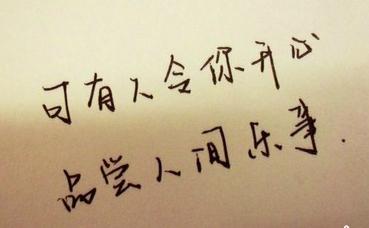 可有人会你开心
品尝人间乐事.